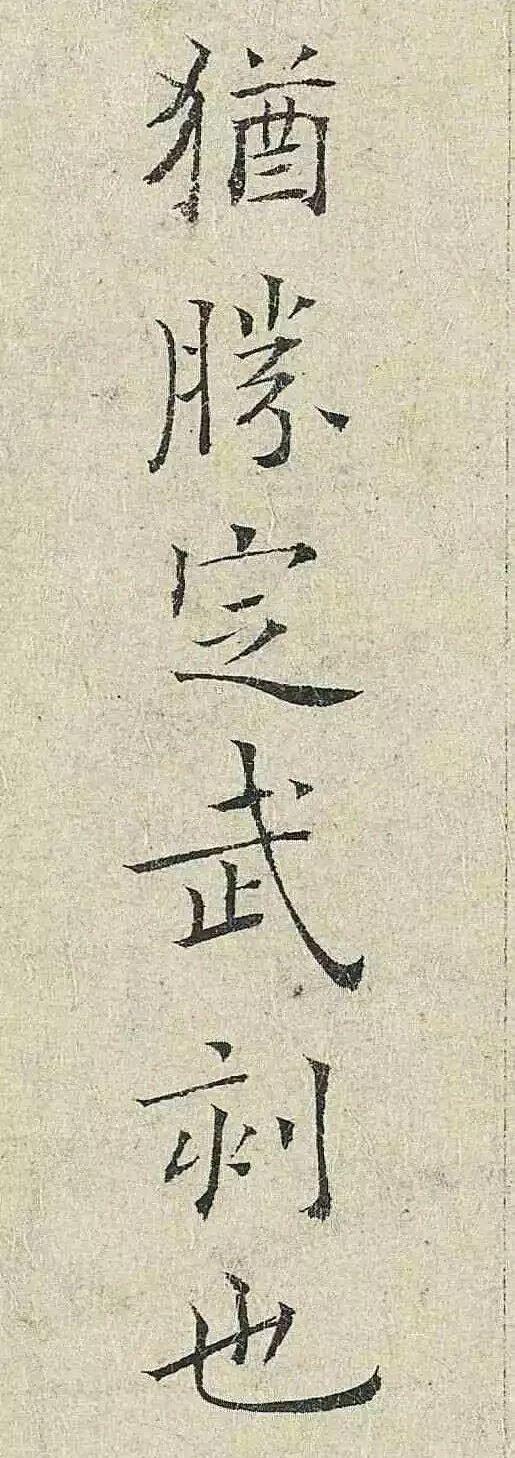 猶勝定武刻也